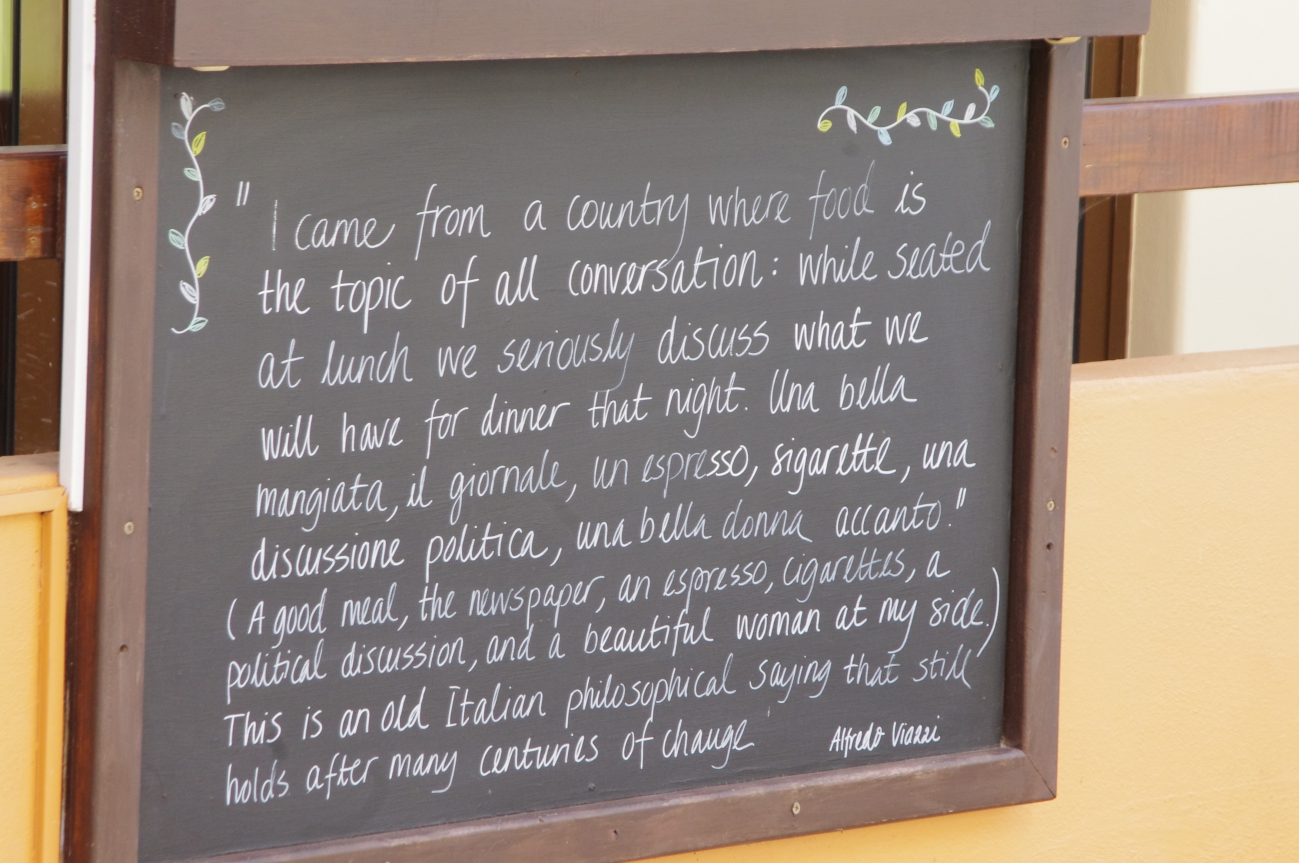 " I came from a country where food is
the topic of all conversation: while seated
at lunch we seriously discuss what we
will have for dinner that night. Una bella
mangiata, il giornale, un espresso, sigarette, una
discussione politica, una bella donna accanto."
(A good meal, the newspaper, an espresso, cigarettes, a
political discussion, and a beautiful woman at my side.)
This is an old Italian philosophical saying that still
holds after many centuries of change
Alfredo Viazzi